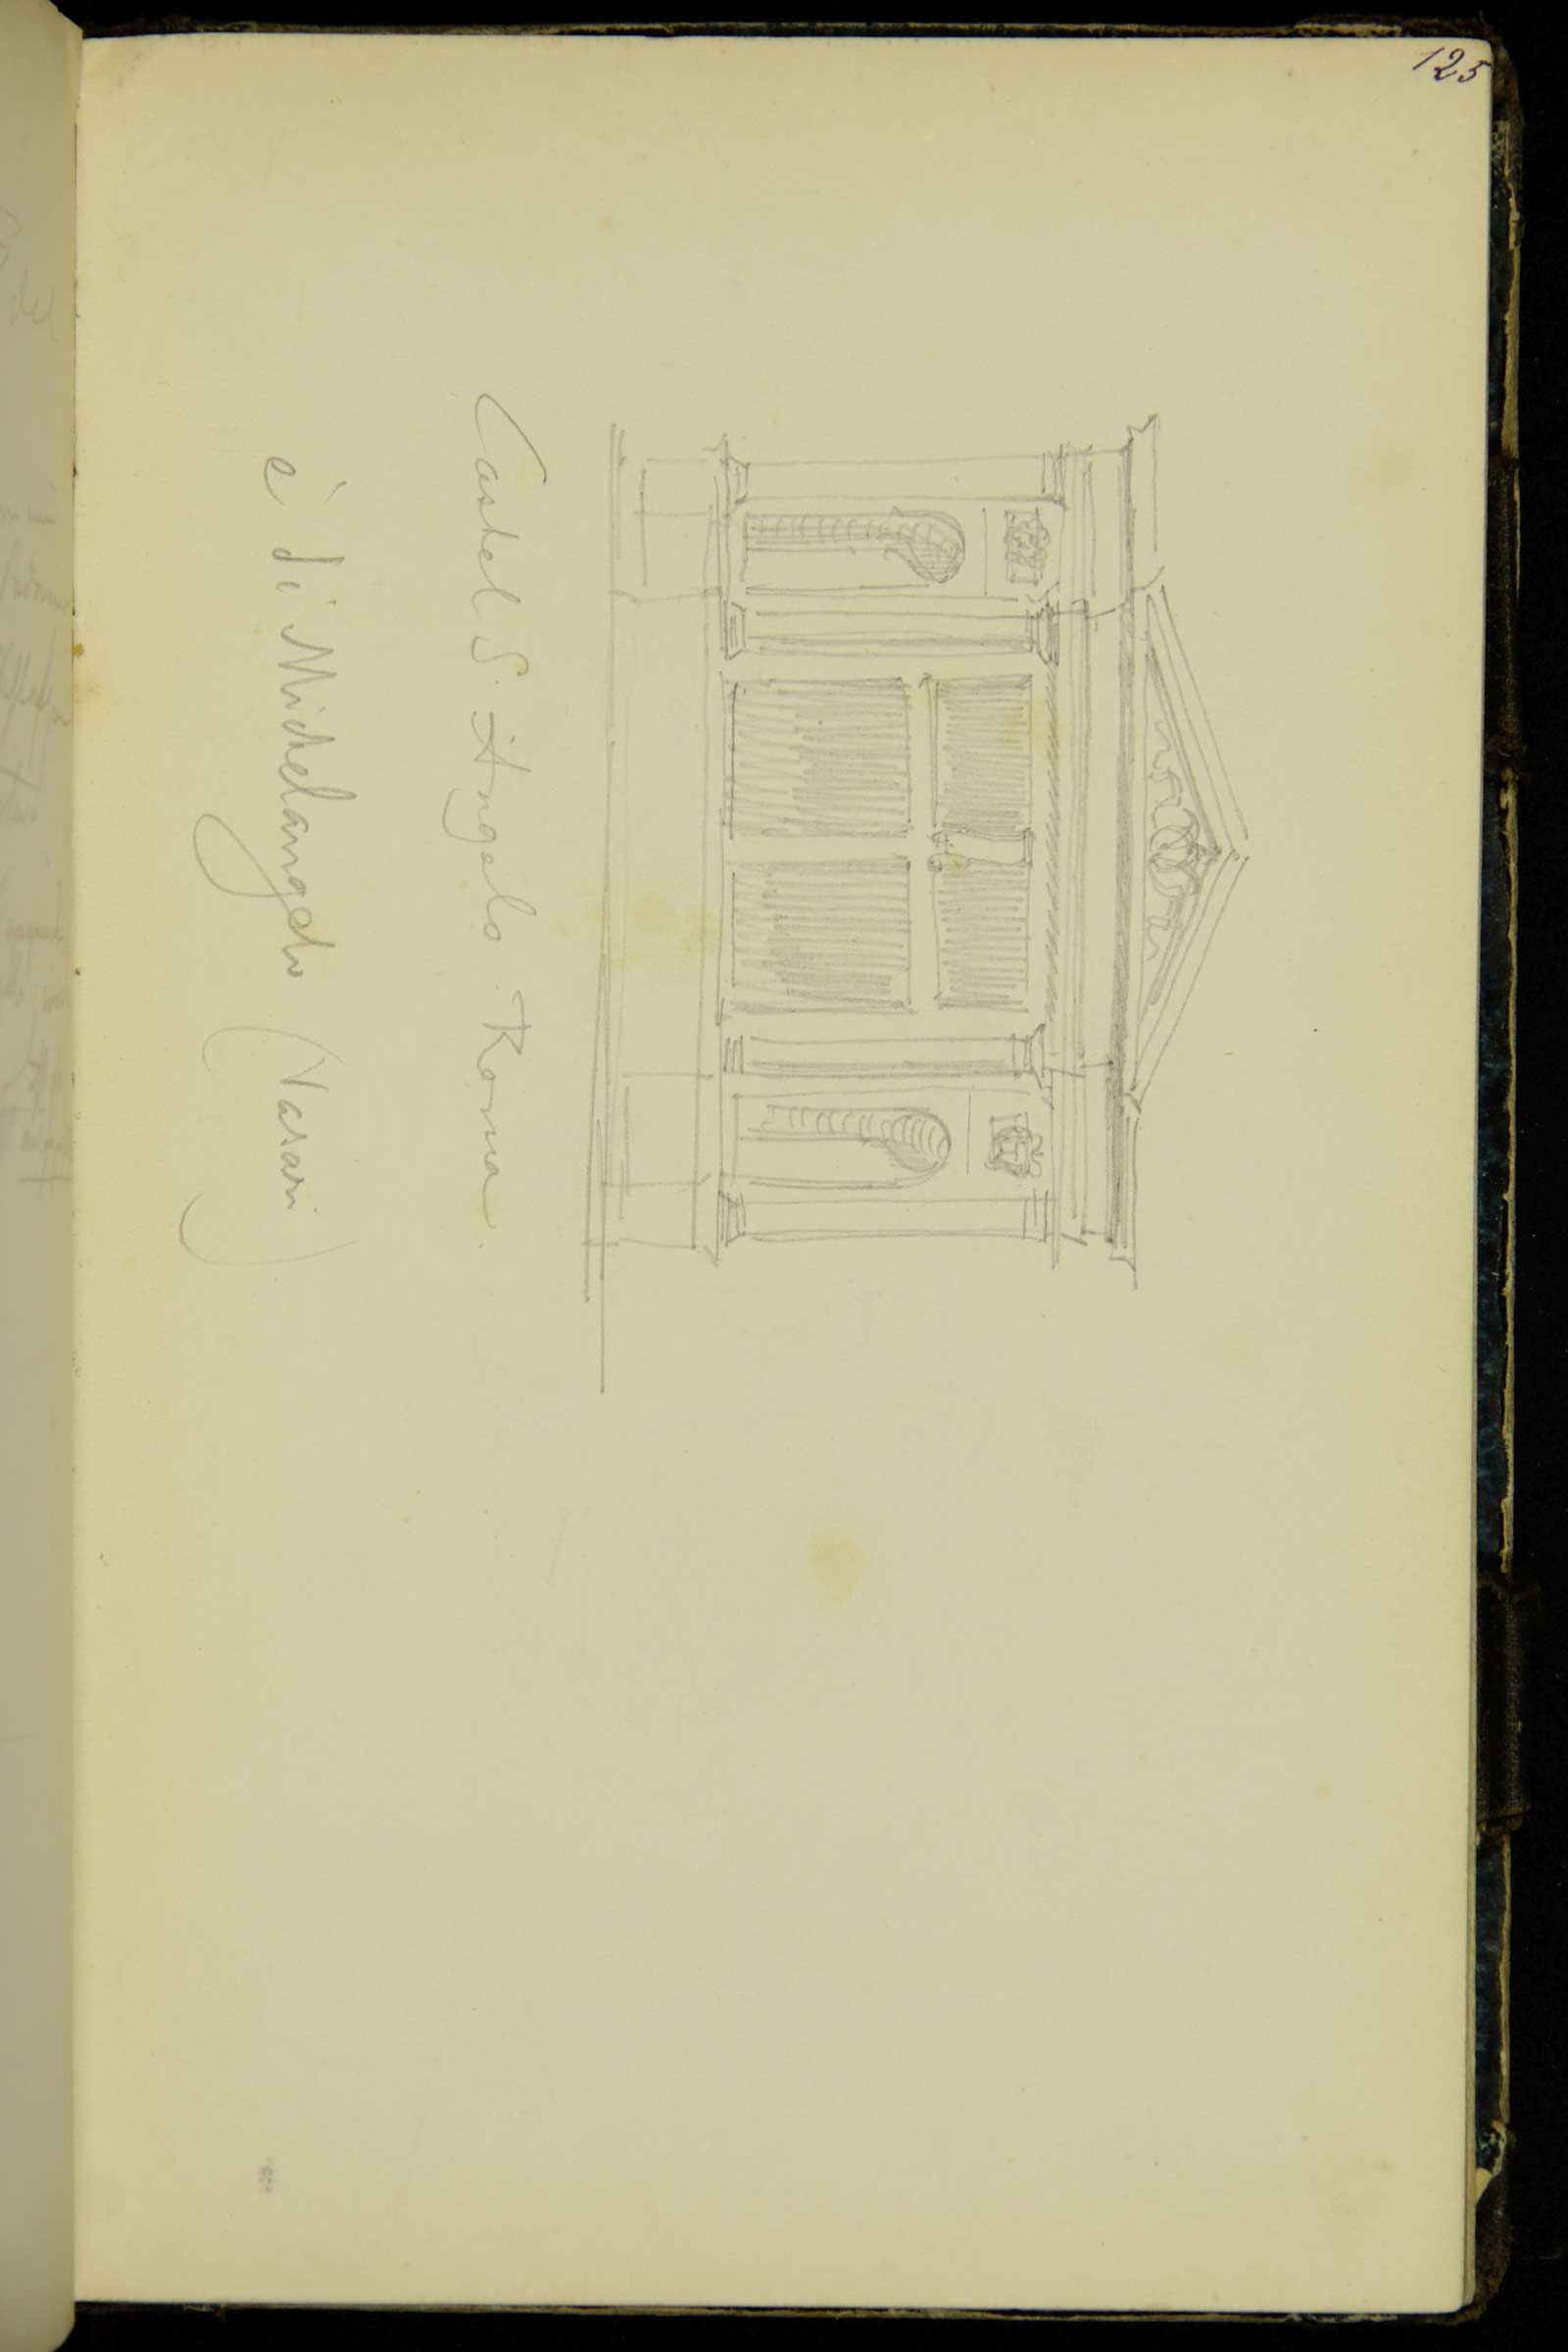 125
Castel S. Angelo Roma.
è di Michelangelo (Vasari)